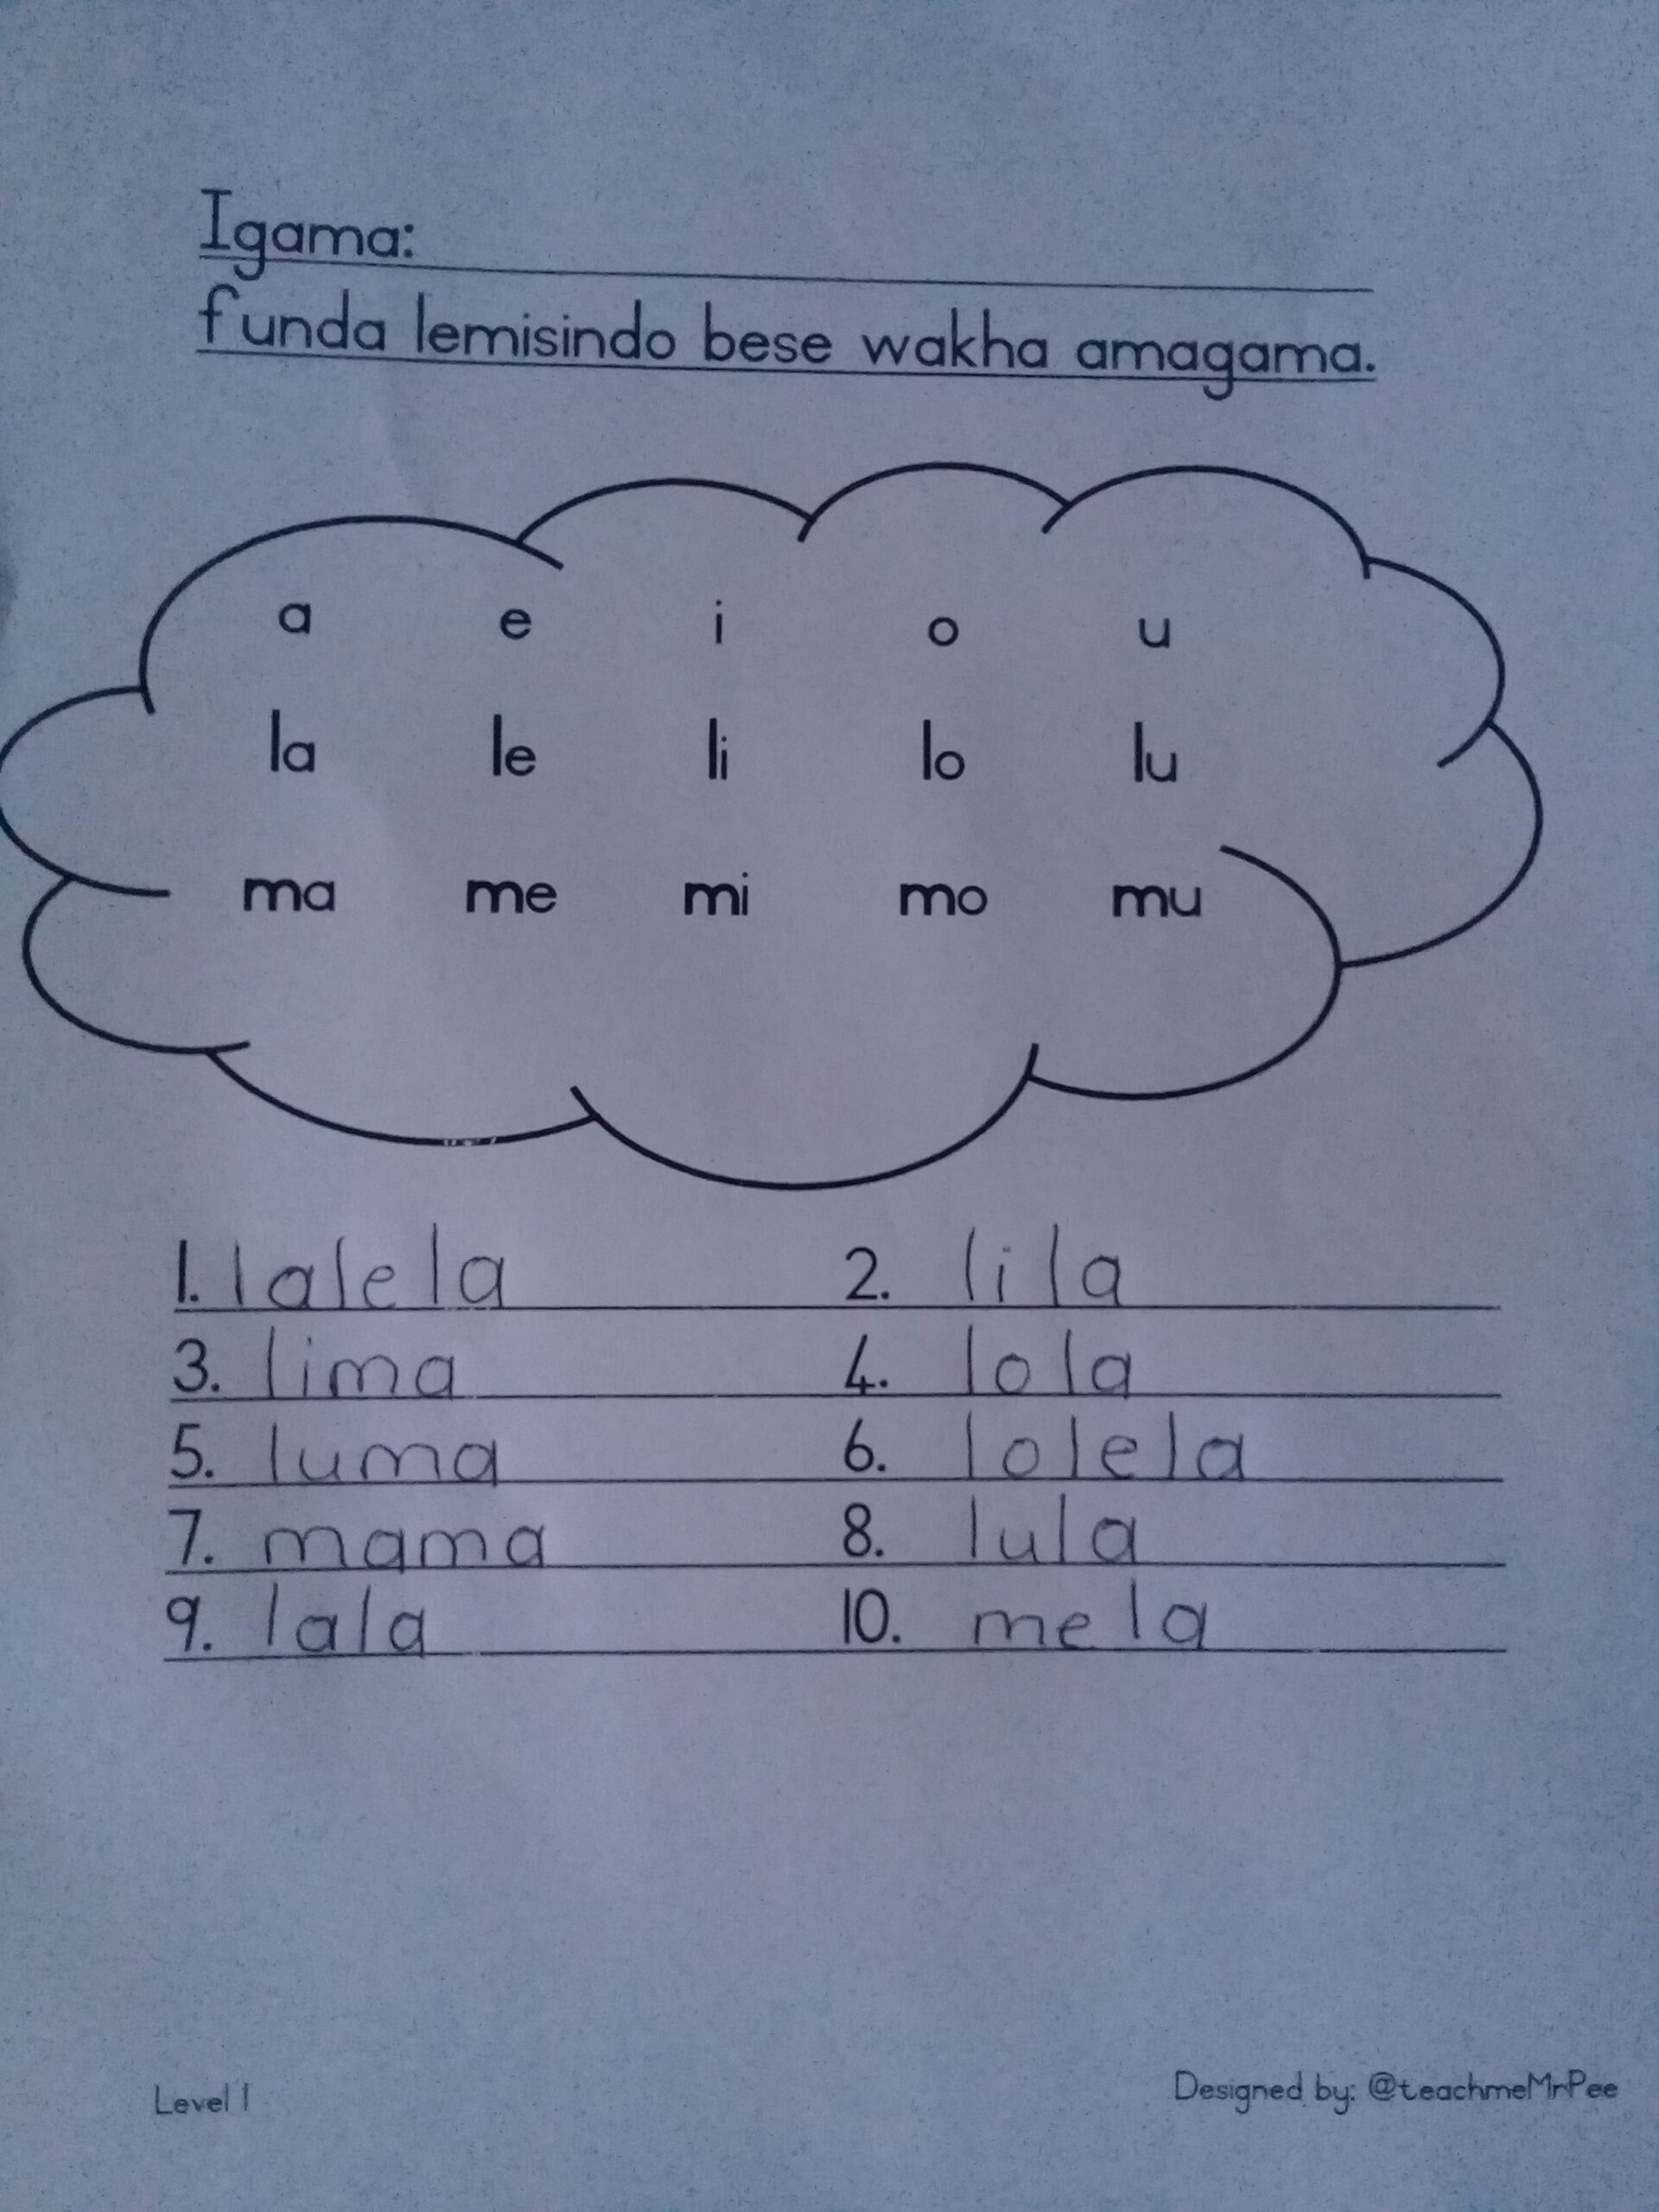 Igama:
funda lemisindo bese wakha amagama.
a e i o u
la le li lo lu
ma me mi mo mu
1. lalela 2. lila
3. lima 4. lola
5. luma 6. lolela
7. mama 8. lula
9. lala 10. mela
Level 1 Designed by: @teachmeMrPee